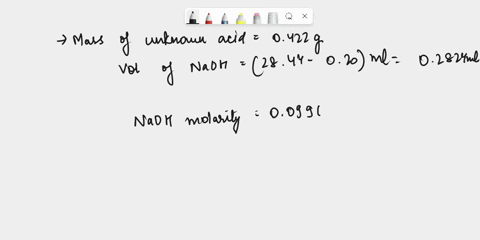 → Mass of unknown acid = 0.422 g
Vol of NaOH = (28.44 - 0.20) ml = 0.2824ml
NaOH molarity = 0.099(